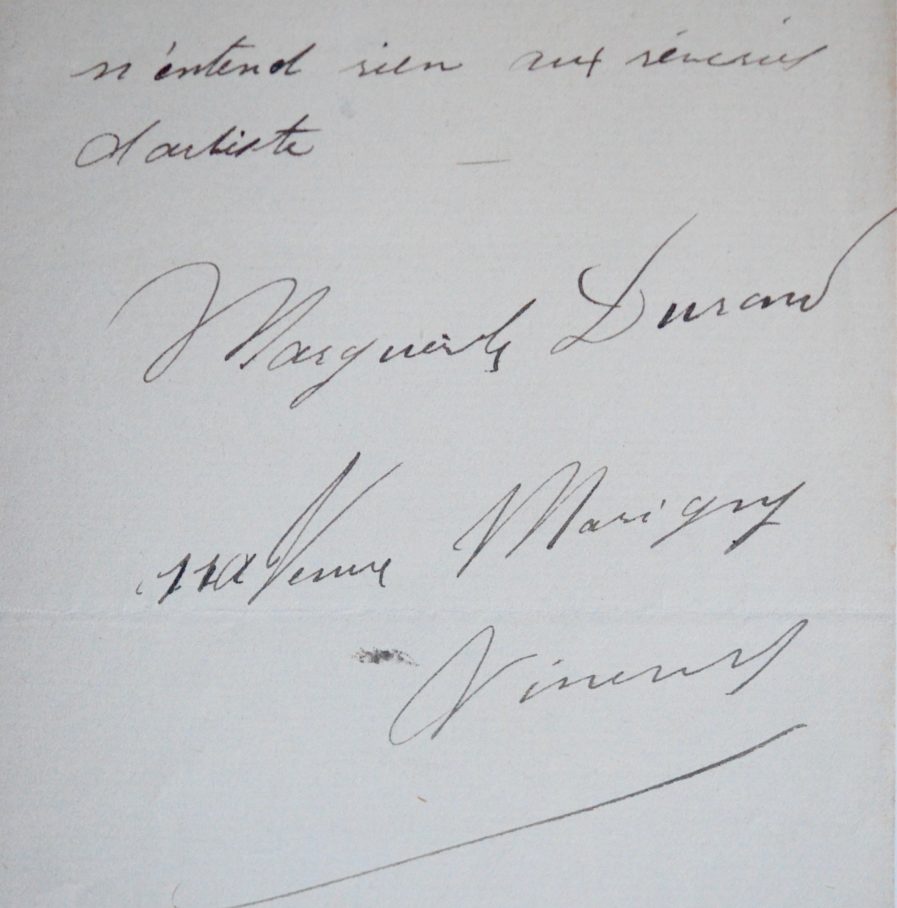 n'entend rien aux rêveries
d'artiste
Marguerite Durand
11 avenue Marigny
Vincennes